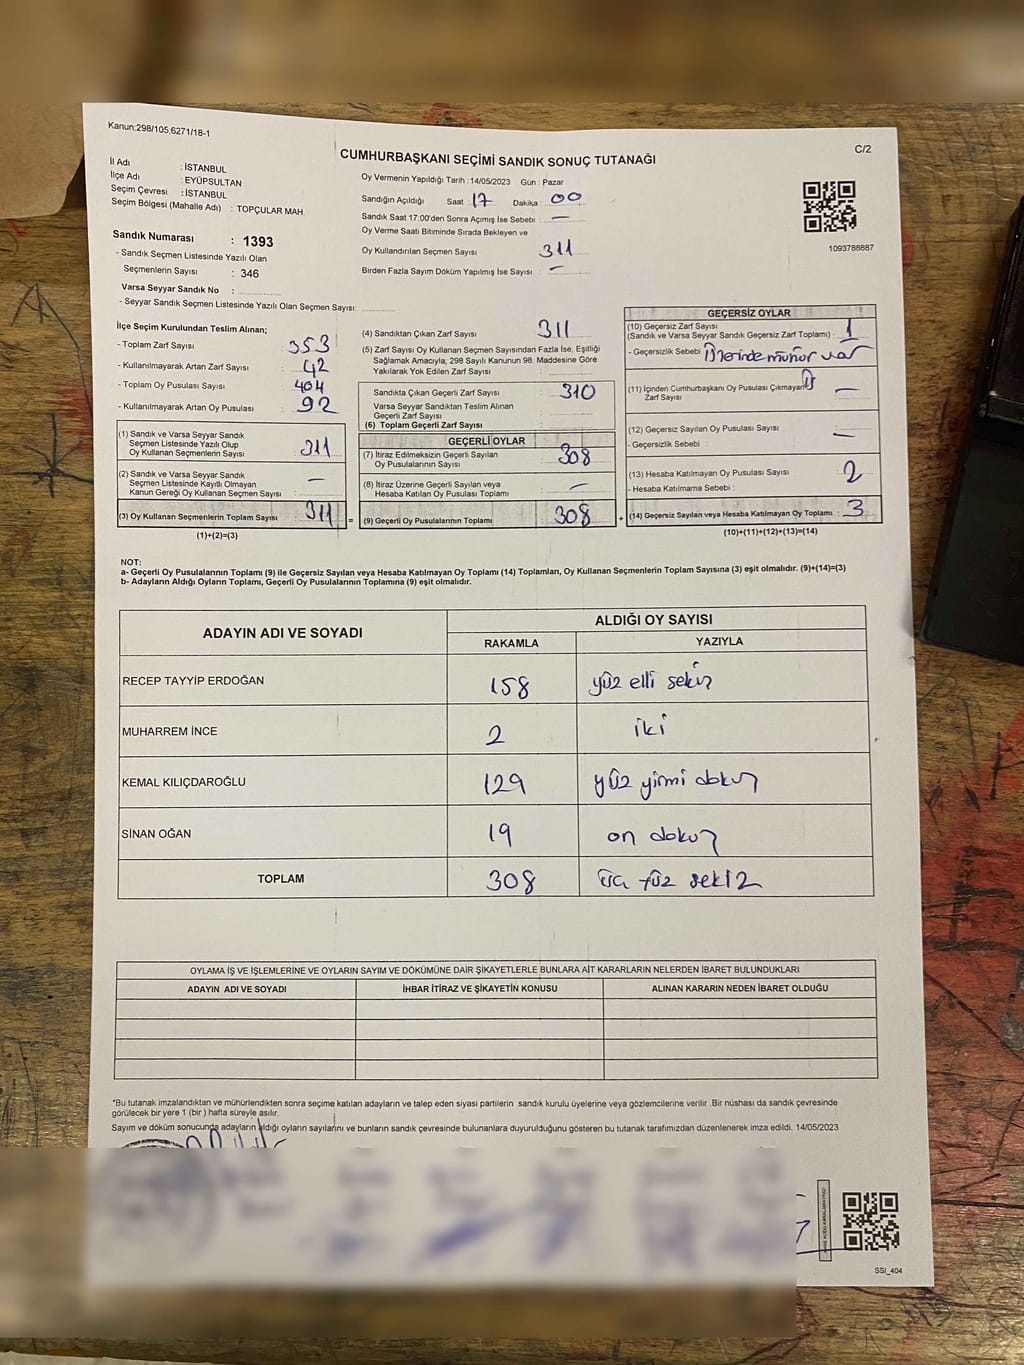 Kanun:298/105,6271/18-1
C/2
CUMHURBAŞKANI SEÇİMİ SANDIK SONUÇ TUTANAĞI
İl Adı : İSTANBUL
İlçe Adı : EYÜPSULTAN
Seçim Çevresi : İSTANBUL
Seçim Bölgesi (Mahalle Adı) : TOPÇULAR MAH
Sandık Numarası : 1393
- Sandık Seçmen Listesinde Yazılı Olan
Seçmenlerin Sayısı : 346
Varsa Seyyar Sandık No :
- Seyyar Sandık Listesinde Yazılı Olan Seçmen Sayısı:
Oy Vermenin Yapıldığı Tarih : 14/05/2023 Gün : Pazar
Sandığın Açıldığı Saat 17 Dakika : 00
Sandık Saat 17:00'den Sonra Açımış İse Sebebi : —
Oy Verme Saati Bitiminde Sırada Bekleyen ve
Oy Kullandırılan Seçmen Sayısı 311
Birden Fazla Sayım Döküm Yapılmış İse Sayısı : —
1093788887
İlçe Seçim Kurulundan Teslim Alınan;
- Toplam Zarf Sayısı : 353
- Kullanılmayarak Artan Zarf Sayısı : 42
- Toplam Oy Pusulası Sayısı : 404
- Kullanılmayarak Artan Oy Pusulası : 92
(1) Sandık ve Varsa Seyyar Sandık
Seçmen Listesinde Yazılı Olup
Oy Kullanan Seçmenlerin Sayısı : 311
(2) Sandık ve Varsa Seyyar Sandık
Seçmen Listesinde Kayıtlı Olmayan
Kanun Gereği Oy Kullanan Seçmen Sayısı : —
(3) Oy Kullanan Seçmenlerin Toplam Sayısı : 311
(1)+(2)=(3)
=
(4) Sandıktan Çıkan Zarf Sayısı 311
(5) Zarf Sayısı Oy Kullanan Seçmen Sayısından Fazla İse, Eşitliği
Sağlamak Amacıyla; 298 Sayılı Kanunun 98. Maddesine Göre
Yakılarak Yok Edilen Zarf Sayısı :
Sandıkta Çıkan Geçerli Zarf Sayısı : 310
Varsa Seyyar Sandıktan Teslim Alınan
Geçerli Zarf Sayısı :
(6) Toplam Geçerli Zarf Sayısı
GEÇERLİ OYLAR
(7) İtiraz Edilmeksizin Geçerli Sayılan
Oy Pusulalarının Sayısı : 308
(8) İtiraz Üzerine Geçerli Sayılan veya
Hesaba Katılan Oy Pusulası Toplamı : —
(9) Geçerli Oy Pusulalarının Toplamı : 308
+
GEÇERSİZ OYLAR
(10) Geçersiz Zarf Sayısı
(Sandık ve Varsa Seyyar Sandık Geçersiz Zarf Toplamı) : 1
- Geçersizlik Sebebi : Üzerinde mühür var
(11) İçinden Cumhurbaşkanı Oy Pusulası Çıkmayan
Zarf Sayısı : —
(12) Geçersiz Sayılan Oy Pusulası Sayısı : —
- Geçersizlik Sebebi :
(13) Hesaba Katılmayan Oy Pusulası Sayısı : 2
- Hesaba Katılmama Sebebi :
(14) Geçersiz Sayılan veya Hesaba Katılmayan Oy Toplamı : 3
(10)+(11)+(12)+(13)=(14)
NOT:
a- Geçerli Oy Pusulalarının Toplamı (9) ile Geçersiz Sayılan veya Hesaba Katılmayan Oy Toplamı (14) Toplamları, Oy Kullanan Seçmenlerin Toplam Sayısına (3) eşit olmalıdır. (9)+(14)=(3)
b- Adayların Aldığı Oyların Toplamı, Geçerli Oy Pusulalarının Toplamına (9) eşit olmalıdır.
ADAYIN ADI VE SOYADI ALDIĞI OY SAYISI
RAKAMLA YAZIYLA
RECEP TAYYİP ERDOĞAN 158 yüz elli sekiz
MUHARREM İNCE 2 iki
KEMAL KILIÇDAROĞLU 129 yüz yirmi dokuz
SİNAN OĞAN 19 on dokuz
TOPLAM 308 üç yüz sekiz
OYLAMA İŞ VE İŞLEMLERİNE VE OYLARIN SAYIM VE DÖKÜMÜNE DAİR ŞİKAYETLERLE BUNLARA AİT KARARLARIN NELERDEN İBARET BULUNDUKLARI
ADAYIN ADI VE SOYADI İHBAR İTİRAZ VE ŞİKAYETİN KONUSU ALINAN KARARIN NEDEN İBARET OLDUĞU
*Bu tutanak imzalandıktan ve mühürlendikten sonra seçime katılan adayların ve talep eden siyasi partilerin sandık kurulu üyelerine veya gözlemcilerine verilir. Bir nüshası da sandık çevresinde
görülecek bir yere 1 (bir) hafta süreyle asılır.
Sayım ve döküm sonucunda adayların aldığı oyların sayılarını ve bunların sandık çevresinde bulunanlara duyurulduğunu gösteren bu tutanak tarafımızdan düzenlenerek imza edildi. 14/05/2023
SSI_404